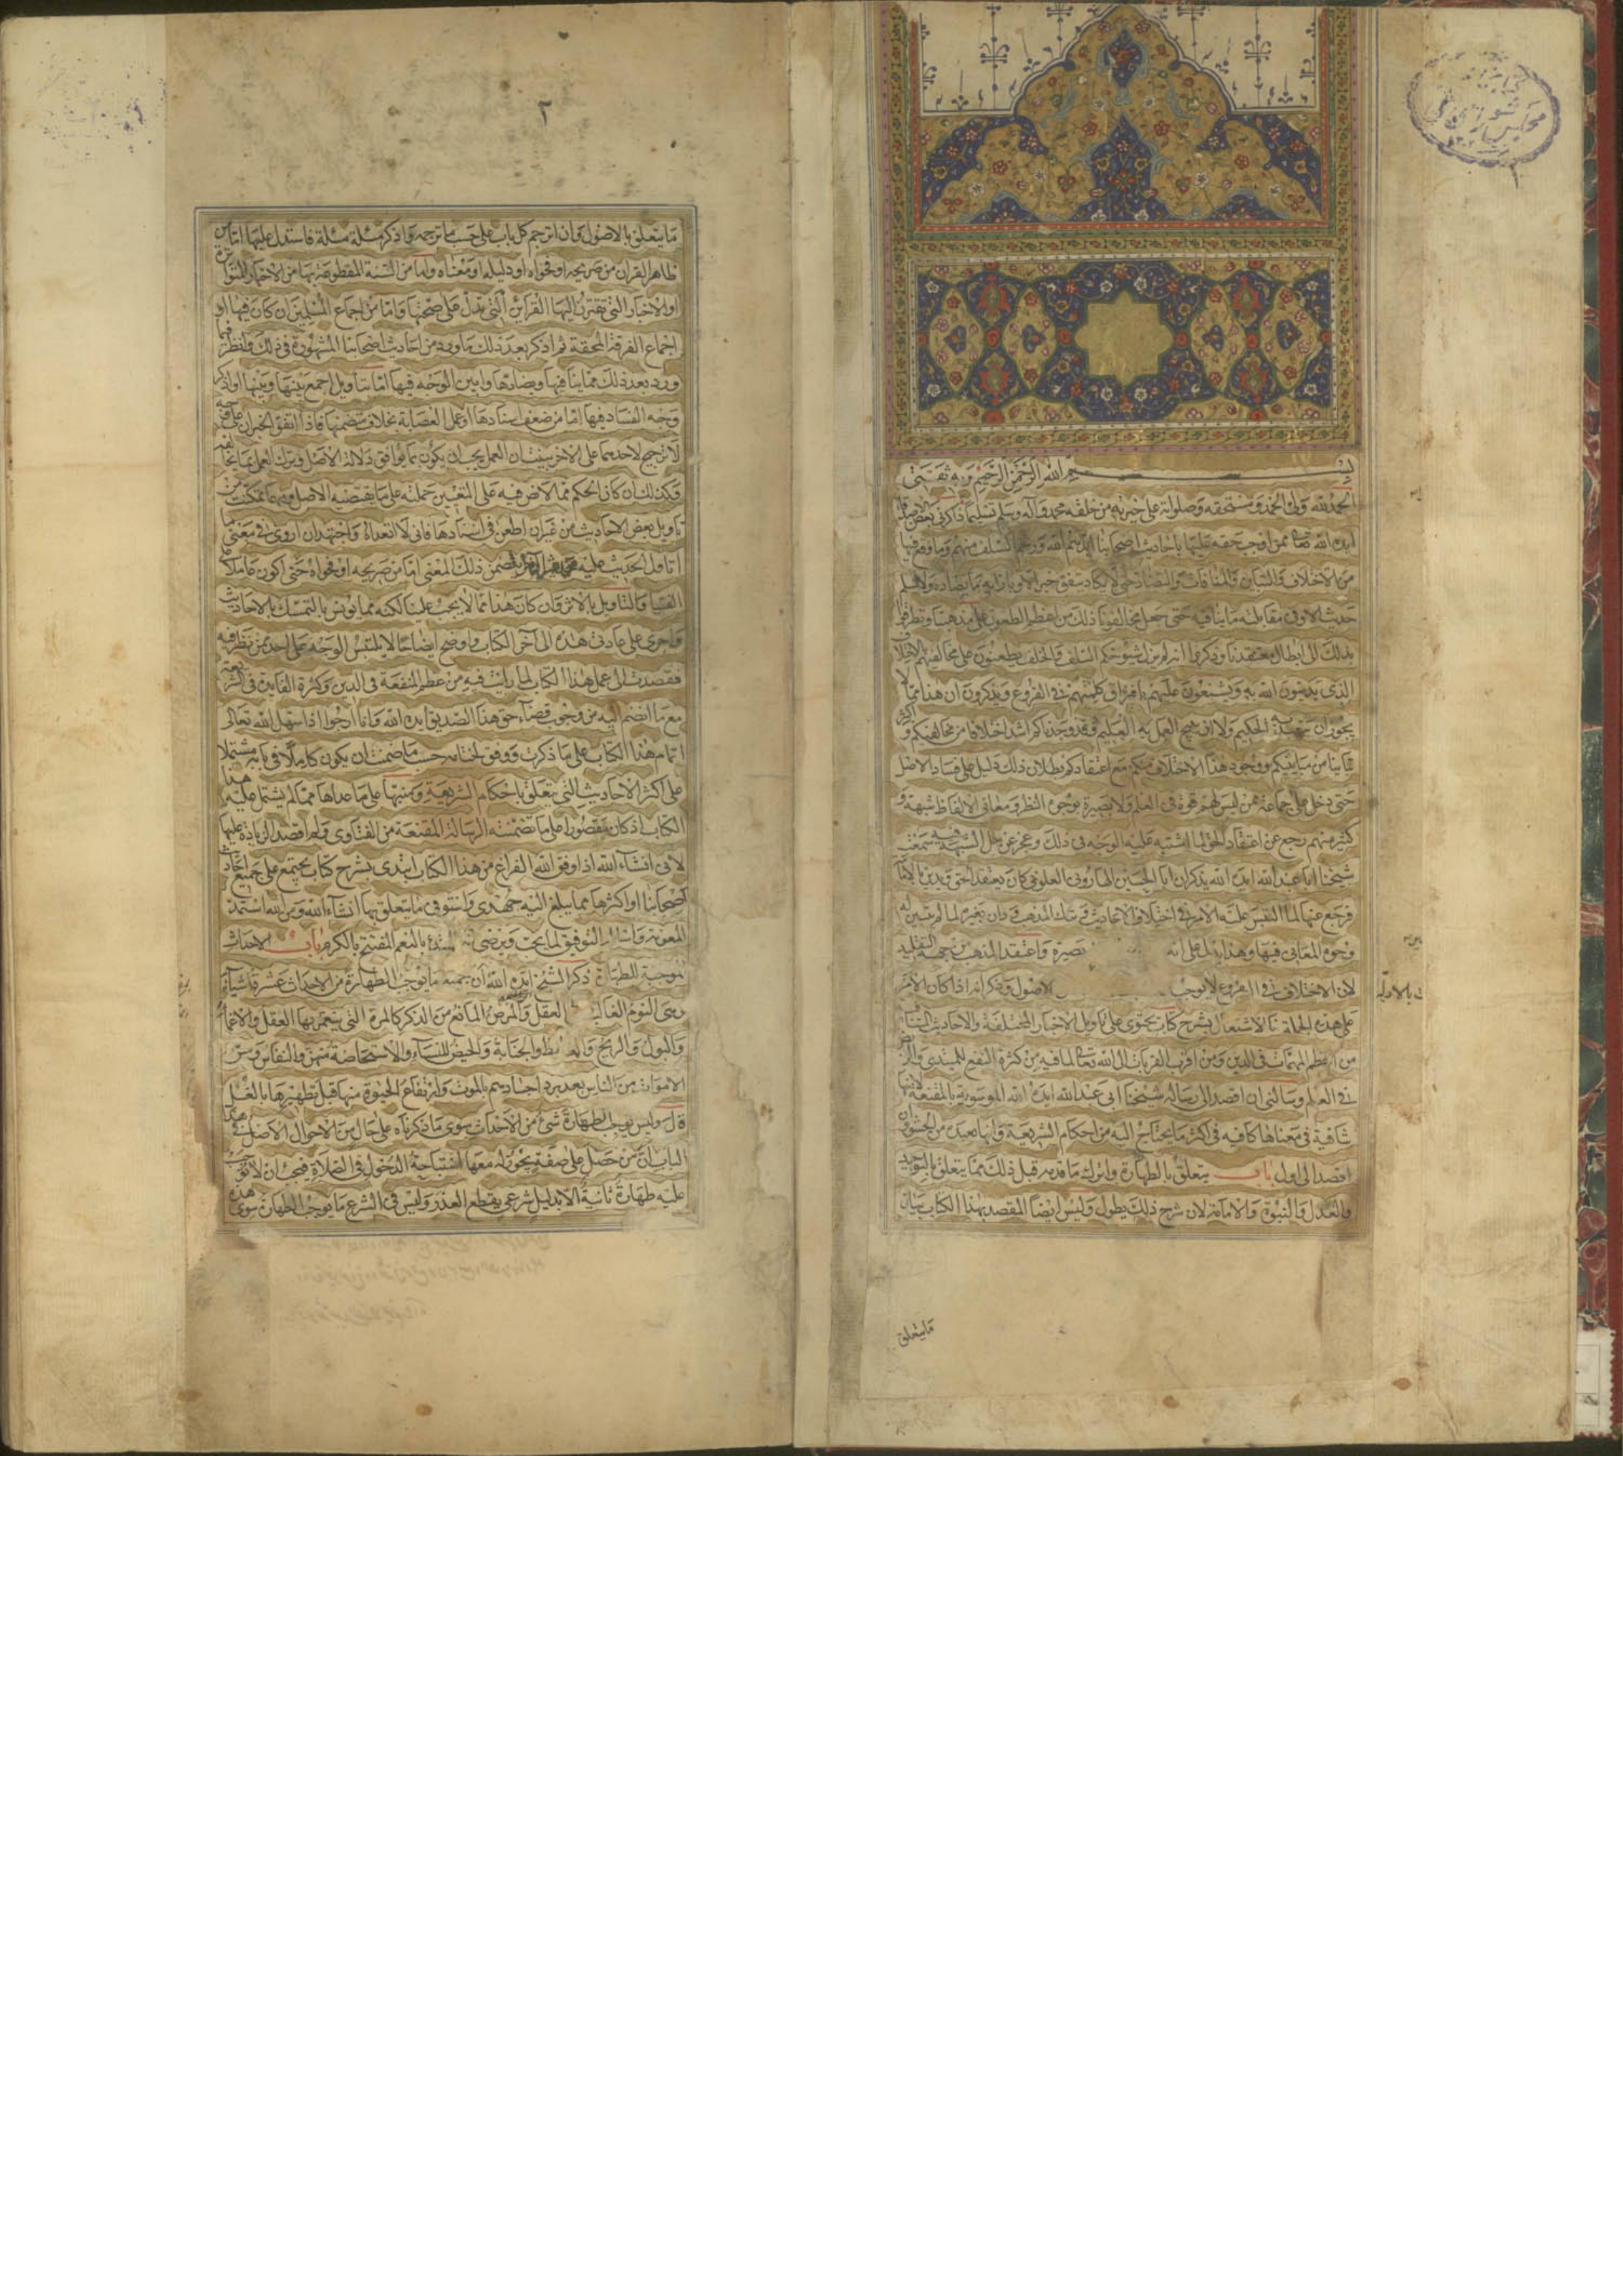 بسم الله الرحمن الرحيم وبه ثقتي
الحمد لله ولي الحمد ومستحقه وصلواته على خيرته من خلقه محمد وآله وسلم تسليما ذاكرني بعض الاصدقاء
ايده الله ممن اوجب حقه علينا باحاديث اصحابنا ايدهم الله ورحم السلف منهم وما وقع فيها
من الاختلاف والتباين والمنافات والتضاد حتى لا يكاد يتفق خبر الا وبازائه ما يضاده ولا يسلم
حديث الا وفى مقابلته ما ينافيه حتى جعل مخالفونا ذلك من اعظم الطعون على مذهبنا وتطرقوا
بذلك الى ابطال معتقدنا وذكروا انه لم يزل شيوخكم السلف والخلف يطعنون على مخالفيهم بالاختلاف
الذى يدينون الله به ويشنعون عليهم بافتراق كلمتهم فى الفروع ويذكرون ان هذا مما لا
يجوز ان يتعبد به الحكيم ولا ان يبيح العمل به العليم وقد وجدناكم اشد اختلافا من مخالفيكم واكثر
تباينا من مباينيكم ووجود هذا الاختلاف منكم مع اعتقادكم بطلان ذلك دليل على فساد الاصل
حتى دخل على جماعة ممن ليس لهم قوة فى العلم ولا بصيرة بوجوه النظر ومعانى الالفاظ شبهة و
كثير منهم رجع عن اعتقاد الحق لما اشتبه عليه الوجه فى ذلك وعجز عن حل الشبهة فيه سمعت
شيخنا ابا عبد الله ايده الله يذكر ان ابا الحسين الهارونى العلوى كان يعتقد الحق ويدين بالامامة
فرجع عنها لما التبس عليه الامر فى اختلاف الاحاديث وترك المذهب ودان بغيره لما لم يتبين له
وجوه المعانى فيها وهذا يدل على انه بصيرة واعتقد المذهب من جهة التقليد
لان الاختلاف فى الفروع لا يوجب الاصول وذكر انه اذا كان الامر
على هذه الجملة فالاشتغال بشرح كتاب يحتوى على تاويل الاخبار المختلفة والاحاديث المتنافية
من اعظم المهمات فى الدين ومن اقرب القربات الى الله تعالى لما فيه من كثرة النفع للمبتدى والريض
فى العلم وسالنى ان اقصد الى رسالة شيخنا ابى عبد الله ايده الله الموسومة بالمقنعة لانها
شافية فى معناها كافية فى اكثر ما يحتاج اليه من احكام الشريعة وانها بعيدة من الحشو وان
اقصد الى اول باب يتعلق بالطهارة واترك ما قدمه قبل ذلك مما يتعلق بالتوحيد
والعدل والنبوة والامامة لان شرح ذلك يطول وليس ايضا المقصد بهذا الكتاب بيان
ما يتعلق
٢
ما يتعلق بالاصول وان اترجم كل باب على حسب ما ترجمه واذكر مسئلة مسئلة فاستدل عليها اما من
ظاهر القران من صريحه او فحواه او دليله او معناه واما من السنة المقطوعة بها من الاخبار المتواترة
او الاخبار التى تقترن اليها القراين التى تدل على صحتها واما من اجماع المسلمين ان كان فيها او
اجماع الفرقة المحقة ثم اذكر بعد ذلك ما ورد من احاديث اصحابنا المشهورة فى ذلك وانظر فيما
ورد بعد ذلك مما ينافيها ويضادها وابين الوجه فيها اما بتاويل اجمع بينها وبينها او اذكر
وجه الفساد فيها اما من ضعف اسنادها او عمل العصابة بخلاف متضمنها فاذا اتفق الخبران على وجه
لا ترجيح لاحدهما على الاخر بينت ان العمل يجب ان يكون بما يوافق دلالة الاصل وترك العمل بما يخالفه
وكذلك ان كان الحكم مما لا نص فيه على التعيين حملته على ما يقتضيه الاصل ومهما تمكنت من
تاويل بعض الاحاديث من غير ان اطعن فى اسنادها فانى لا اتعداه واجتهد ان اروى فى معنى ما
اتاول الحديث عليه يتضمن ذلك المعنى اما من صريحه او فحواه حتى اكون عاملا على
الفتيا والتاويل بالاثر وان كان هذا مما لا يجب علينا لكنه مما يونس بالتمسك بالاحاديث
واجرى على عادتى هذه الى آخر الكتاب واوضح ايضاحا لا يلتبس الوجه على احد ممن نظر فيه
فقصدت الى عمل هذا الكتاب لما رايت فيه من عظم المنفعة فى الدين وكثرة الفايدة فى الشريعة
مع ما انضم اليه من وجوب قضاء حق هذا الصديق ايده الله وانا ارجوا اذا سهل الله تعالى
اتمام هذا الكتاب على ما ذكرت ووفق لختامه حسب ما ضمنت ان يكون كاملا فى بابه مشتملا
على اكثر الاحاديث التى يتعلق باحكام الشريعة ومنبها على ما عداها مما لم يشتمل عليه هذا
الكتاب اذ كان مقصورا على ما تضمنته الرسالة المقنعة من الفتاوى ولم اقصد الزيادة عليها
لانى انشاء الله اذا وفق الله الفراغ من هذا الكتاب ابتدى بشرح كتاب يجتمع على جميع احاديث
اصحابنا او اكثرها مما يبلغ اليه جهدى واستوفى ما يتعلق بها انشاء الله ومن الله استمد
المعونة التوفيق لما يحب ويرضى انه المبتدئ بالنعم المفتتح بالكرم باب الاحداث
الموجبة للطهارة ذكر الشيخ ايده الله ان جميع ما يوجب الطهارة من الاحداث عشرة اشياء
وهى النوم الغالب العقل والمرض المانع من الذكر كالمرة التى ينغمر بها العقل والاغماء
والبول والريح والغائط والجنابة والحيض للنساء والاستحاضة منهن والنفاس ومس
الاموات من الناس بعد برد اجسادهم بالموت وارتفاع الحيوة منها قبل تطهيرها بالغسل
قال وليس يوجب الطهارة شئ من الاحداث سوى ما ذكرناه على حال من الاحوال الاصل فى هذا
الباب ان من حصل على صفة يجوز له معها استباحة الدخول فى الصلاة فيجب ان لا توجب
عليه طهارة ثانية الا بدليل شرعى يقطع العذر وليس فى الشرع ما يوجب الطهارة سوى هذه